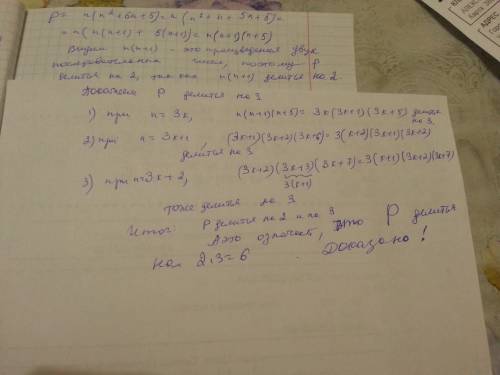 P = n(n²+6n+5) = n(n²+n+5n+5) =
= n(n(n+1) + 5(n+1)) = n(n+1)(n+5)
Видим n(n+1) - это произведение двух
последовательных чисел, поэтому P
делится на 2, так как n(n+1) делится на 2.
Докажем P делится на 3
1) при n = 3k, n(n+1)(n+5) = 3k(3k+1)(3k+5) делится
на 3.
2) при n = 3k+1, (3k+1)(3k+2)(3k+6) = 3(k+2)(3k+1)(3k+2)
делится на 3
3) при n=3k+2, (3k+2)(3k+3)(3k+7) = 3(k+1)(3k+2)(3k+7)
3(k+1)
тоже делится на 3
Итог: P делится на 2 и на 3
А это означает, что P делится
на 2·3=6 Доказано!